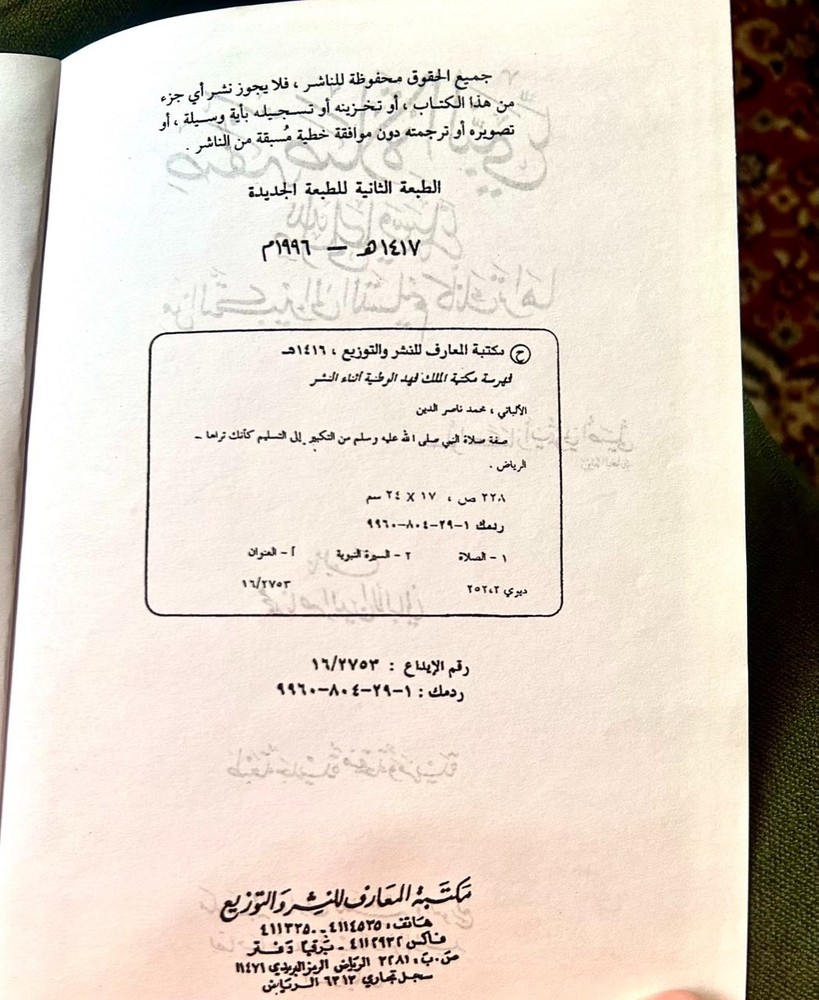 جميع الحقوق محفوظة للناشر ، فلا يجوز نشر أي جزء
من هذا الكتاب ، أو تخزينه أو تسجيله بأية وسيلة ، أو
تصويره أو ترجمته دون موافقة خطية مُسبقة من الناشر .
الطبعة الثانية للطبعة الجديدة
١٤١٧هـ — ١٩٩٦م
ح مكتبة المعارف للنشر والتوزيع ، ١٤١٦هـ
فهرسة مكتبة الملك فهد الوطنية أثناء النشر
الألباني ، محمد ناصر الدين
صفة صلاة النبي صلى الله عليه وسلم من التكبير إلى التسليم كأنك تراها –
الرياض .
٢٢٨ ص ، ١٧ × ٢٤ سم
ردمك ١-٢٩-٨٠٤-٩٩٦٠
١ – الصلاة ٢ – السيرة النبوية أ – العنوان
ديوي ٢٥٢،٢ ١٦/٢٧٥٣
رقم الإيداع : ١٦/٢٧٥٣
ردمك : ١-٢٩-٨٠٤-٩٩٦٠
مكتبة المعارف للنشر والتوزيع
هاتف : ٤١١٤٥٣٥ - ٤١١٣٣٥٠
فاكس ٤١١٢٩٣٢ - برقيا دفتر
ص.ب : ٣٢٨١ الرياض الرمز البريدي ١١٤٧١
سجل تجاري ٦٣١٣ الرياض